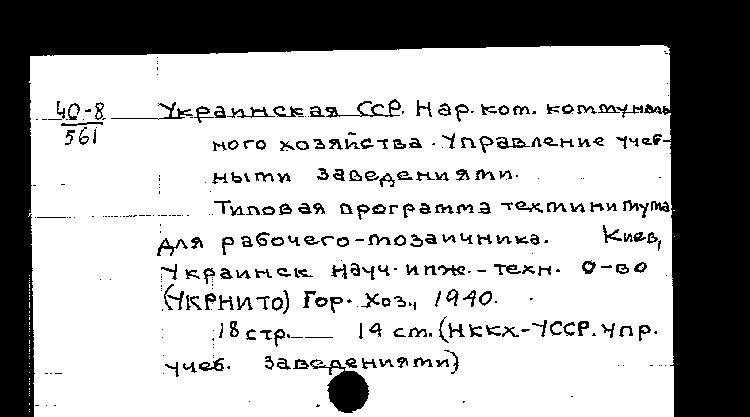 40-8
561
Украинская ССР. Нар. ком. коммуналь
ного хозяйства. Управление учеб-
ными заведениями.
Типовая программа техминимума
для рабочего-мозаичника. Киев,
Украинск науч. инж.-техн. о-во
(УКРНИТО) Гор. хоз., 1940.
18 стр. 14 см. (НККХ-УССР. Упр.
учеб. заведениями)